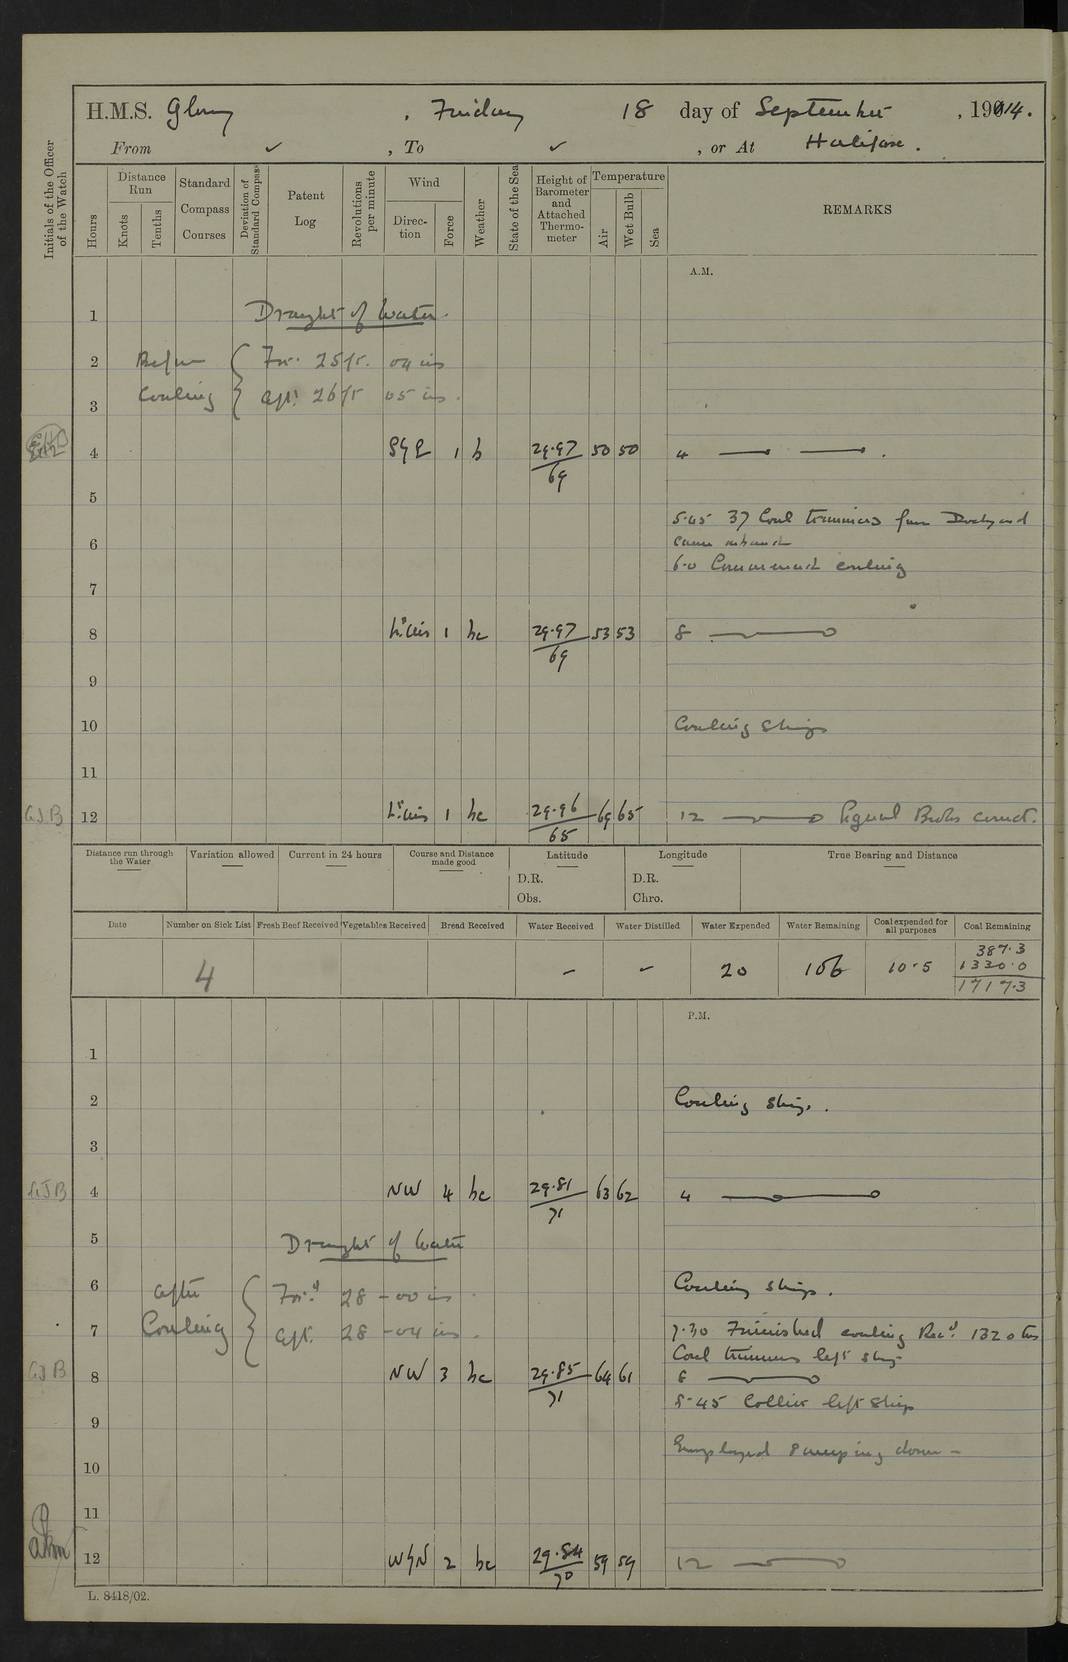 H.M.S. Glory, Friday 18 day of September, 1914.
From ✓, To ✓, or At Halifax.
Initials of the Officer of the Watch
Hours
Distance Run
Knots
Tenths
Standard Compass Courses
Deviation of Standard Compass
Patent Log
Revolutions per minute
Wind
Direction
Force
Weather
State of the Sea
Height of Barometer and Attached Thermometer
Temperature
Air
Wet Bulb
Sea
REMARKS
A.M.
1 Draught of Water.
2 Before { For. 25ft. 04 ins
3 Coaling { Aft. 26ft 05 ins.
4 S by E 1 b 29.97/69 50 50 4
5
5.45 37 Coal trimmers from Dockyard
6 came onboard
6.0 Commenced coaling
7
8 Lt. airs 1 bc 29.97/69 53 53 8
9
10 Coaling Ship
11
G.J.B 12 Lt. airs 1 bc 29.96/65 69 65 12 Signal Books correct.
Distance run through the Water
Variation allowed
Current in 24 hours
Course and Distance made good
Latitude
D.R.
Obs.
Longitude
D.R.
Chro.
True Bearing and Distance
Date
Number on Sick List
Fresh Beef Received
Vegetables Received
Bread Received
Water Received
Water Distilled
Water Expended
Water Remaining
Coal expended for all purposes
Coal Remaining
387.3
4 – – 20 106 10.5 1330.0
1717.3
P.M.
1
2 Coaling Ship.
3
G.J.B 4 NW 4 bc 29.81/71 63 62 4
5 Draught of Water
6 After { For.d 28 - 00 ins Coaling ship.
7 Coaling { Aft. 28 - 04 ins. 7.30 Finished coaling Rec.d 1320 tns
Coal trimmers left ship
G.J.B 8 NW 3 bc 29.85/71 64 61 8
8.45 Collier left Ship
9
Employed sweeping down -
10
11
12 W by N 2 bc 29.84/70 59 59 12
L. 8418/02.